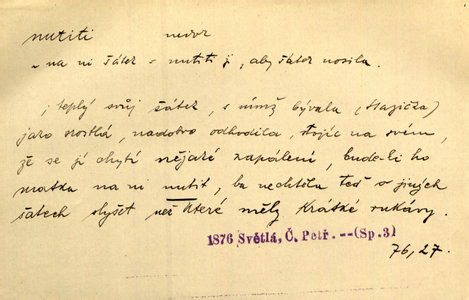 nutiti nedok
~ na ni šátek = nutiti ji, aby šátek nosila.
i teplý svůj šátek, s nímž bývala (Hazička)
jako srostlá, nadobro odhodila, stojíc na svém,
že se jí chytí nějaké zapálení, bude-li ho
matka na ni nutit, ba nechtěla teď o jiných
šatech slyšet než které měly krátké rukávy.
1876 Světlá, Č. Petř. --(Sp.3)
76, 27.